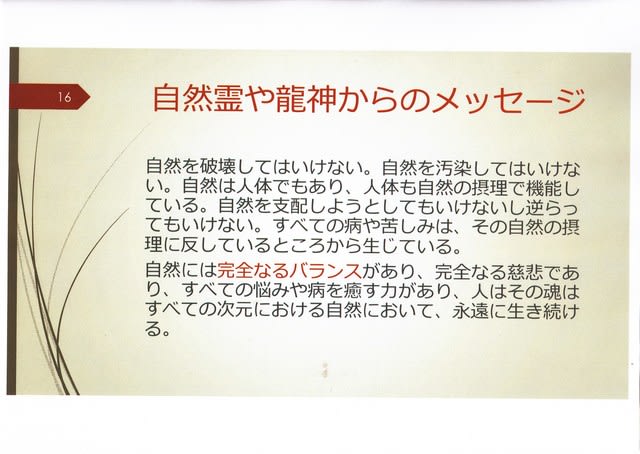 16
自然霊や龍神からのメッセージ
自然を破壊してはいけない。自然を汚染してはいけな
い。自然は人体でもあり、人体も自然の摂理で機能し
ている。自然を支配しようとしてもいけないし逆らっ
てもいけない。すべての病や苦しみは、その自然の摂
理に反しているところから生じている。
自然には完全なるバランスがあり、完全なる慈悲であ
り、すべての悩みや病を癒す力があり、人はその魂は
すべての次元における自然において、永遠に生き続け
る。